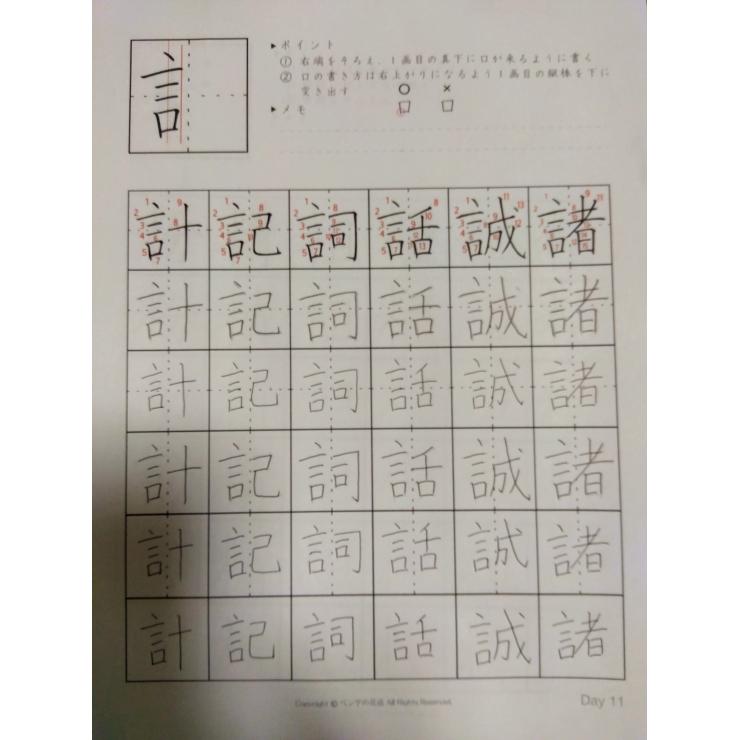 言
▶ポイント
① 右端をそろえ、1画目の真下に口が来るように書く
② 口の書き方は右上がりになるよう1画目の縦棒を下に
突き出す ○ ×
▶メモ 口 口
計 記 詞 話 誠 諸
計 記 詞 話 誠 諸
計 記 詞 話 誠 諸
計 記 詞 話 誠 諸
計 記 詞 話 誠 諸
計 記 詞 話 誠 諸
Copyright © ペン字の花道 All Rights Reserved.
Day 11